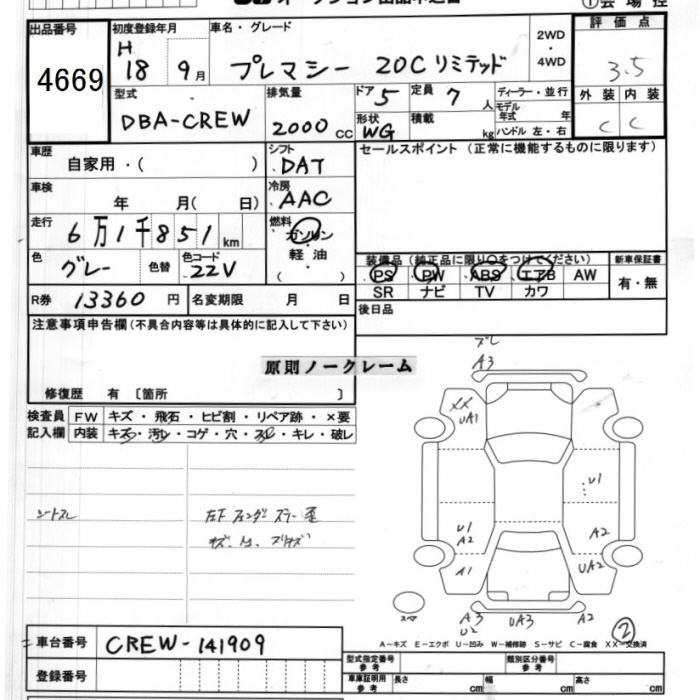 出品番号 初度登録年月 車名・グレード 2WD ・ 4WD 評価点
4669 H 18 9月 プレマシー 20Cリミテッド 3.5
型式 排気量 ドア 5 定員 7人 ディーラー・並行 外装 内装
DBA-CREW 2000cc 形状 WG 積載 kg モデル年式 年 ハンドル 左・右 C C
車歴 シフト セールスポイント (正常に機能するものに限ります)
自家用・( ) DAT
車検 冷房
年 月( 日) AAC
走行 燃料
6万1千851km ガソリン
色 色替 色コード 軽油
グレー 22V ( )
装備品(純正品に限り○をつけてください) 新車保証書
PS PW ABS エアB AW 有・無
SR ナビ TV カワ
R券 13360円 名変期限 月 日
後日品
注意事項申告欄(不具合内容等は具体的に記入して下さい)
原則ノークレーム
修復歴 有 〔箇所 〕
検査員 FW キズ・飛石・ヒビ割・リペア跡・×要
記入欄 内装 キズ・汚レ・コゲ・穴・スレ・キレ・破レ
シートスレ
ズレ
A3
XX
UA1
U1
U1
A2
A2
A1
UA2
A3
U2
UA3
A2
スペア
2
A-キズ E-エクボ U-凹み W-補修跡 S-サビ C-腐食 XX-交換済
車台番号 CREW-141909
登録番号
型式指定番号 参考 類別区分番号 参考
車庫証明用 参考 長さ cm 幅 cm 高さ cm